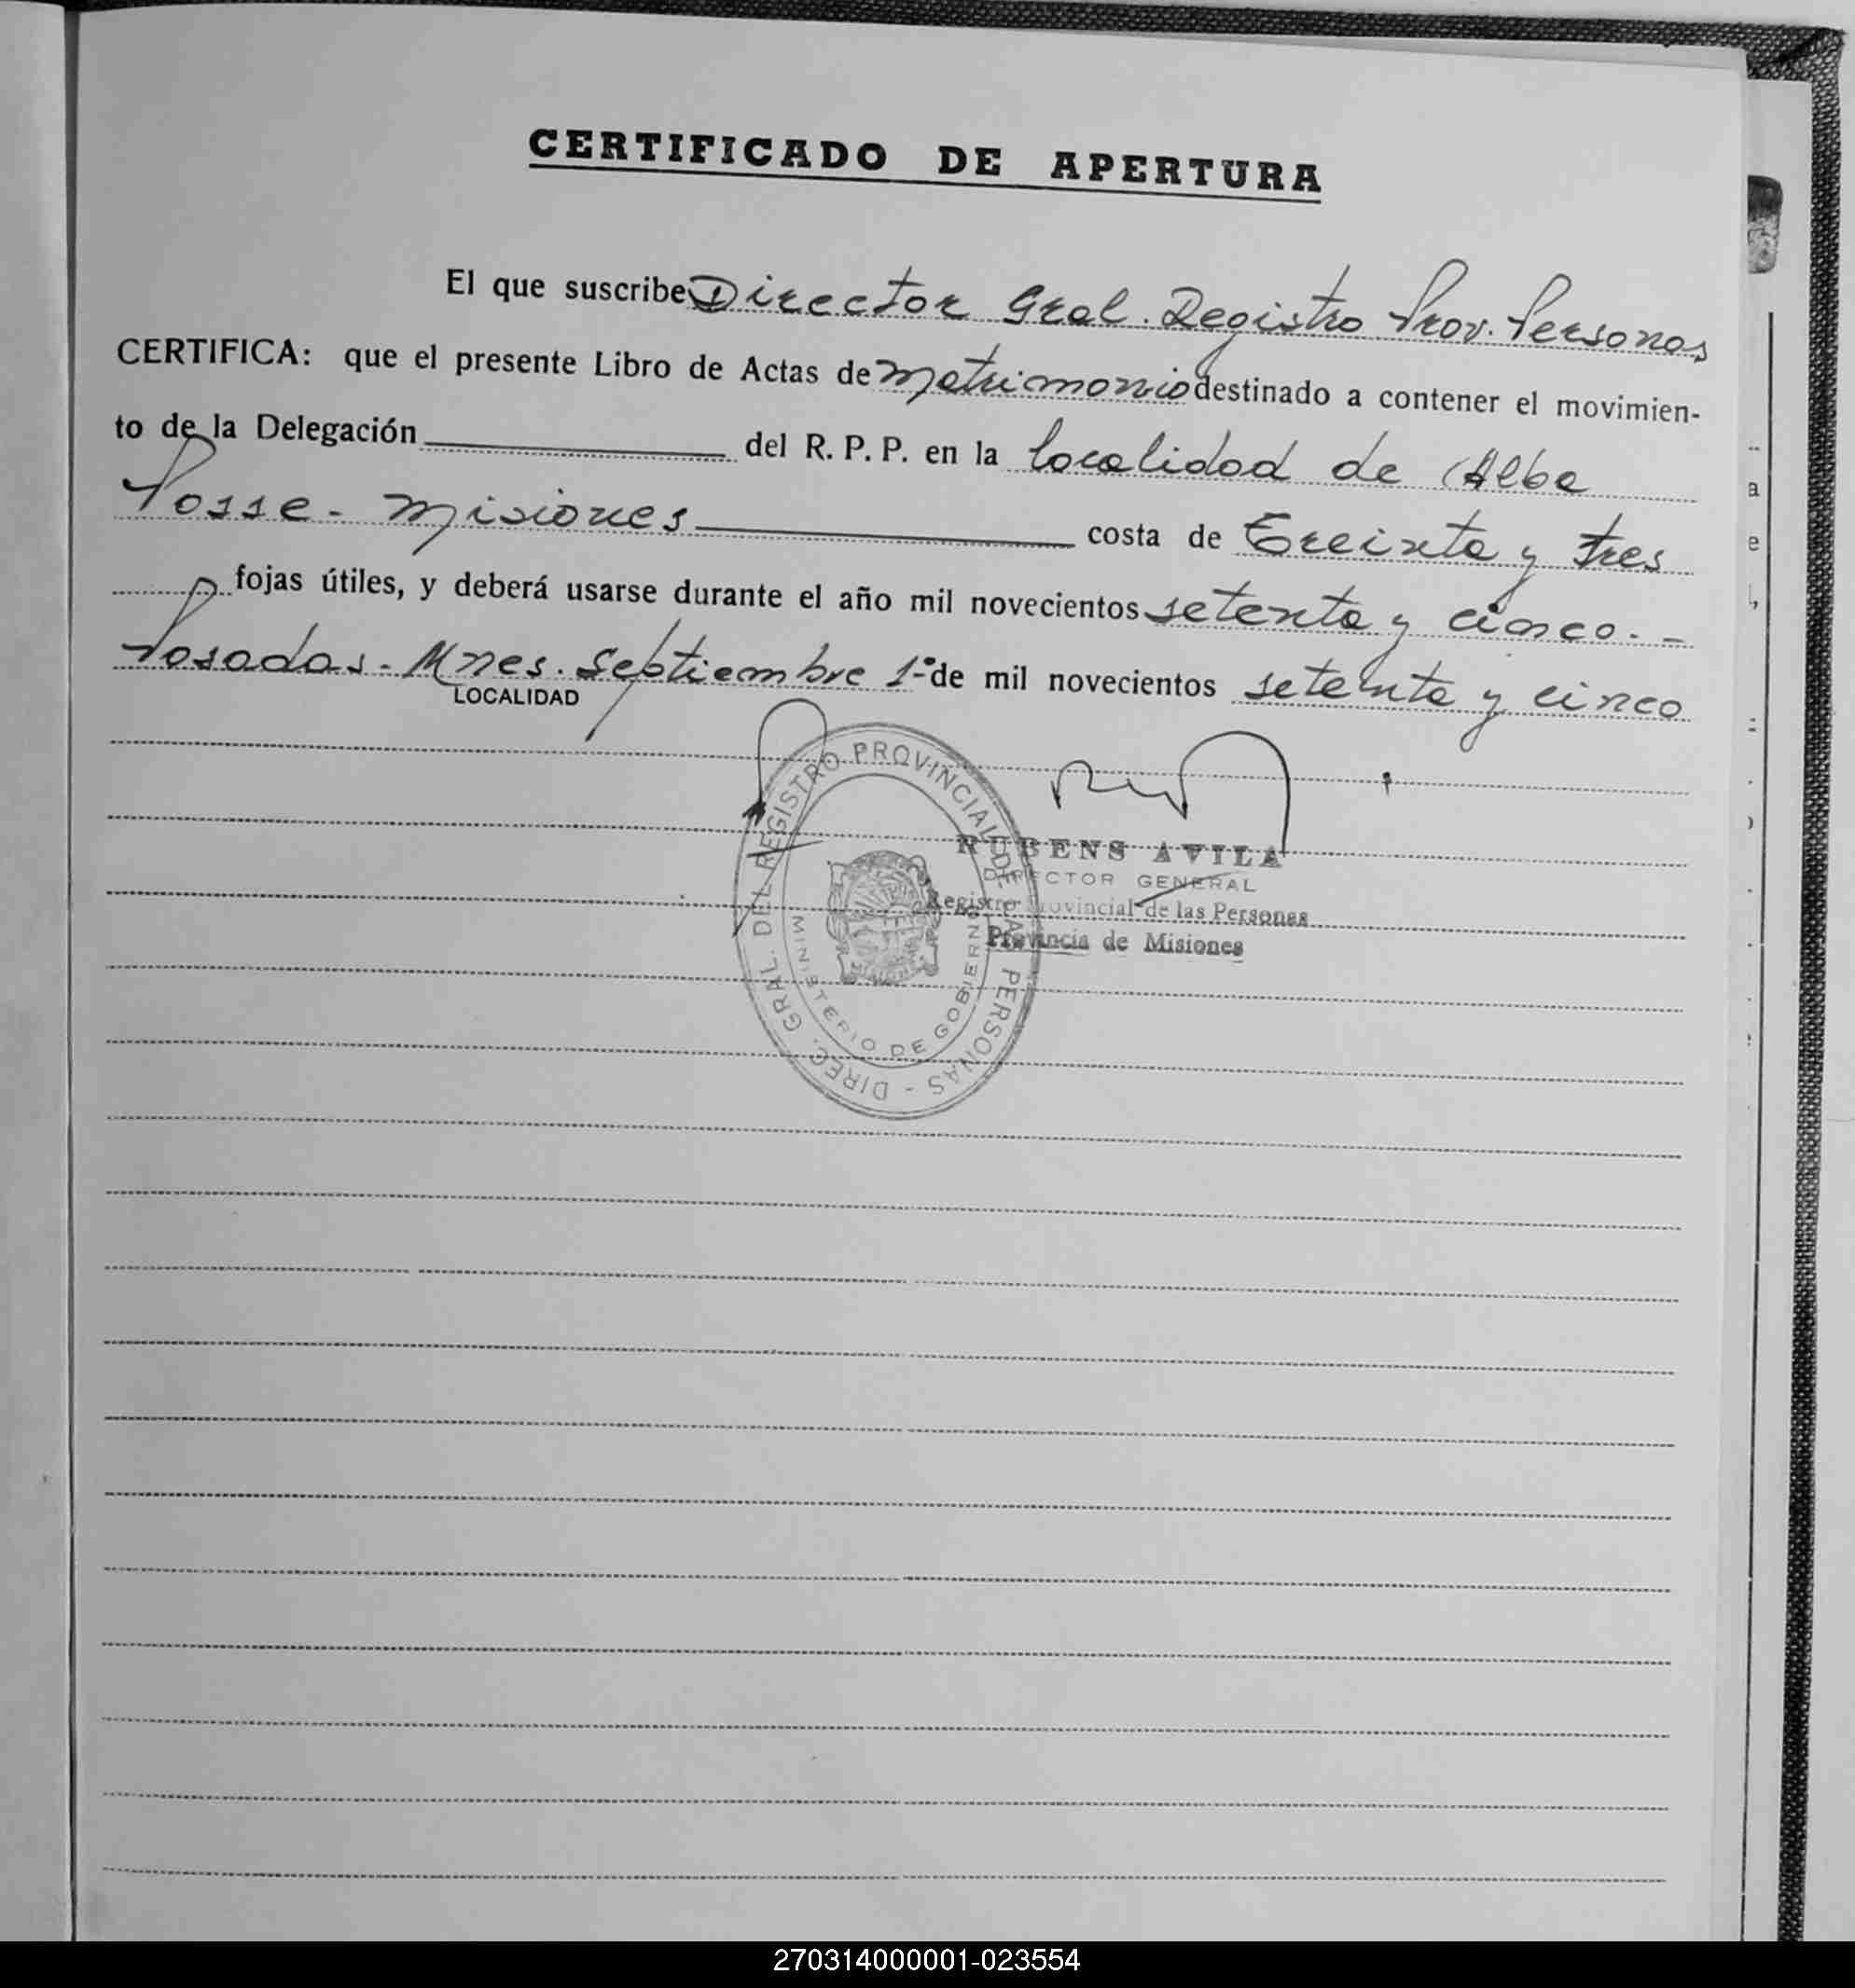 CERTIFICADO DE APERTURA
El que suscribe Director Gral. Registro Prov. Personas
CERTIFICA: que el presente Libro de Actas de Matrimonio destinado a contener el movimien-
to de la Delegación del R. P. P. en la localidad de Alba
Posse - Misiones costa de Treinta y tres
fojas útiles, y deberá usarse durante el año mil novecientos setenta y cinco. -
Posadas - Mnes. Septiembre 1º de mil novecientos setenta y cinco
LOCALIDAD
DIREC. GRAL. DEL REGISTRO PROVINCIAL DE LAS PERSONAS -
MINISTERIO DE GOBIERNO
RUBENS AVILA
DIRECTOR GENERAL
Registro Provincial de las Personas
Provincia de Misiones
270314000001-023554